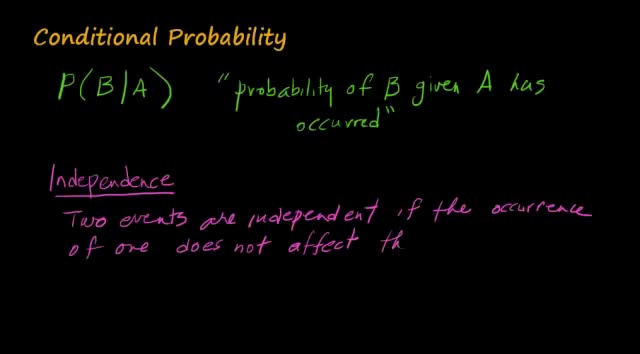 Conditional Probability
P(B/A) "probability of B given A has
occurred"
Independence
Two events are independent if the occurrence
of one does not affect th